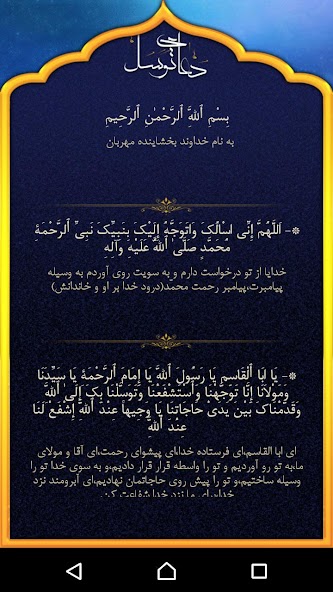 دعای توسل
بِسْمِ اَللَّهِ اَلرَّحْمٰنِ اَلرَّحِيمِ
به نام خداوند بخشاینده مهربان
*- اَللَّهُمَّ إِنِّی اسْالُکَ وَاتَوَجَّهُ إِلَیْکَ بِنَبِیِّکَ نَبِیِّ اَلرَّحْمَةِ
مُحَمَّدٍ صَلَّیٰ اَللَّهُ عَلَیْهِ وَآلِهِ
خدایا از تو درخواست دارم و به سویت روی آوردم به وسیله
پیامبرت،پیامبر رحمت محمد(درود خدا بر او و خاندانش)
*- یَا ابَا اَلْقَاسِمِ یَا رَسُولَ اَللَّهِ یَا إِمَامَ اَلرَّحْمَةِ یَا سَیِّدَنَا
وَمَوْلَانَا إِنَّا تَوَجَّهْنَا وَاسْتَشْفَعْنَا وَتَوَسَّلْنَا بِکَ إِلَیٰ اَللَّهِ
وَقَدَّمْنَاکَ بَیْنَ یَدَیْ حَاجَاتِنَا یَا وَجِیهاً عِنْدَ اَللَّهِ إِشْفَعْ لَنَا
عِنْدَ اَللَّهِ
ای ابا القاسم،ای فرستاده خدا،ای پیشوای رحمت،ای آقا و مولای
ما،به تو رو آوردیم و تو را واسطه قرار قرار دادیم،و به سوی خدا تو را
وسیله ساختیم،و تو را پیش روی حاجاتمان نهادیم،ای آبرومند نزد
خدا،برای ما نزد خدا شفاعت کن.